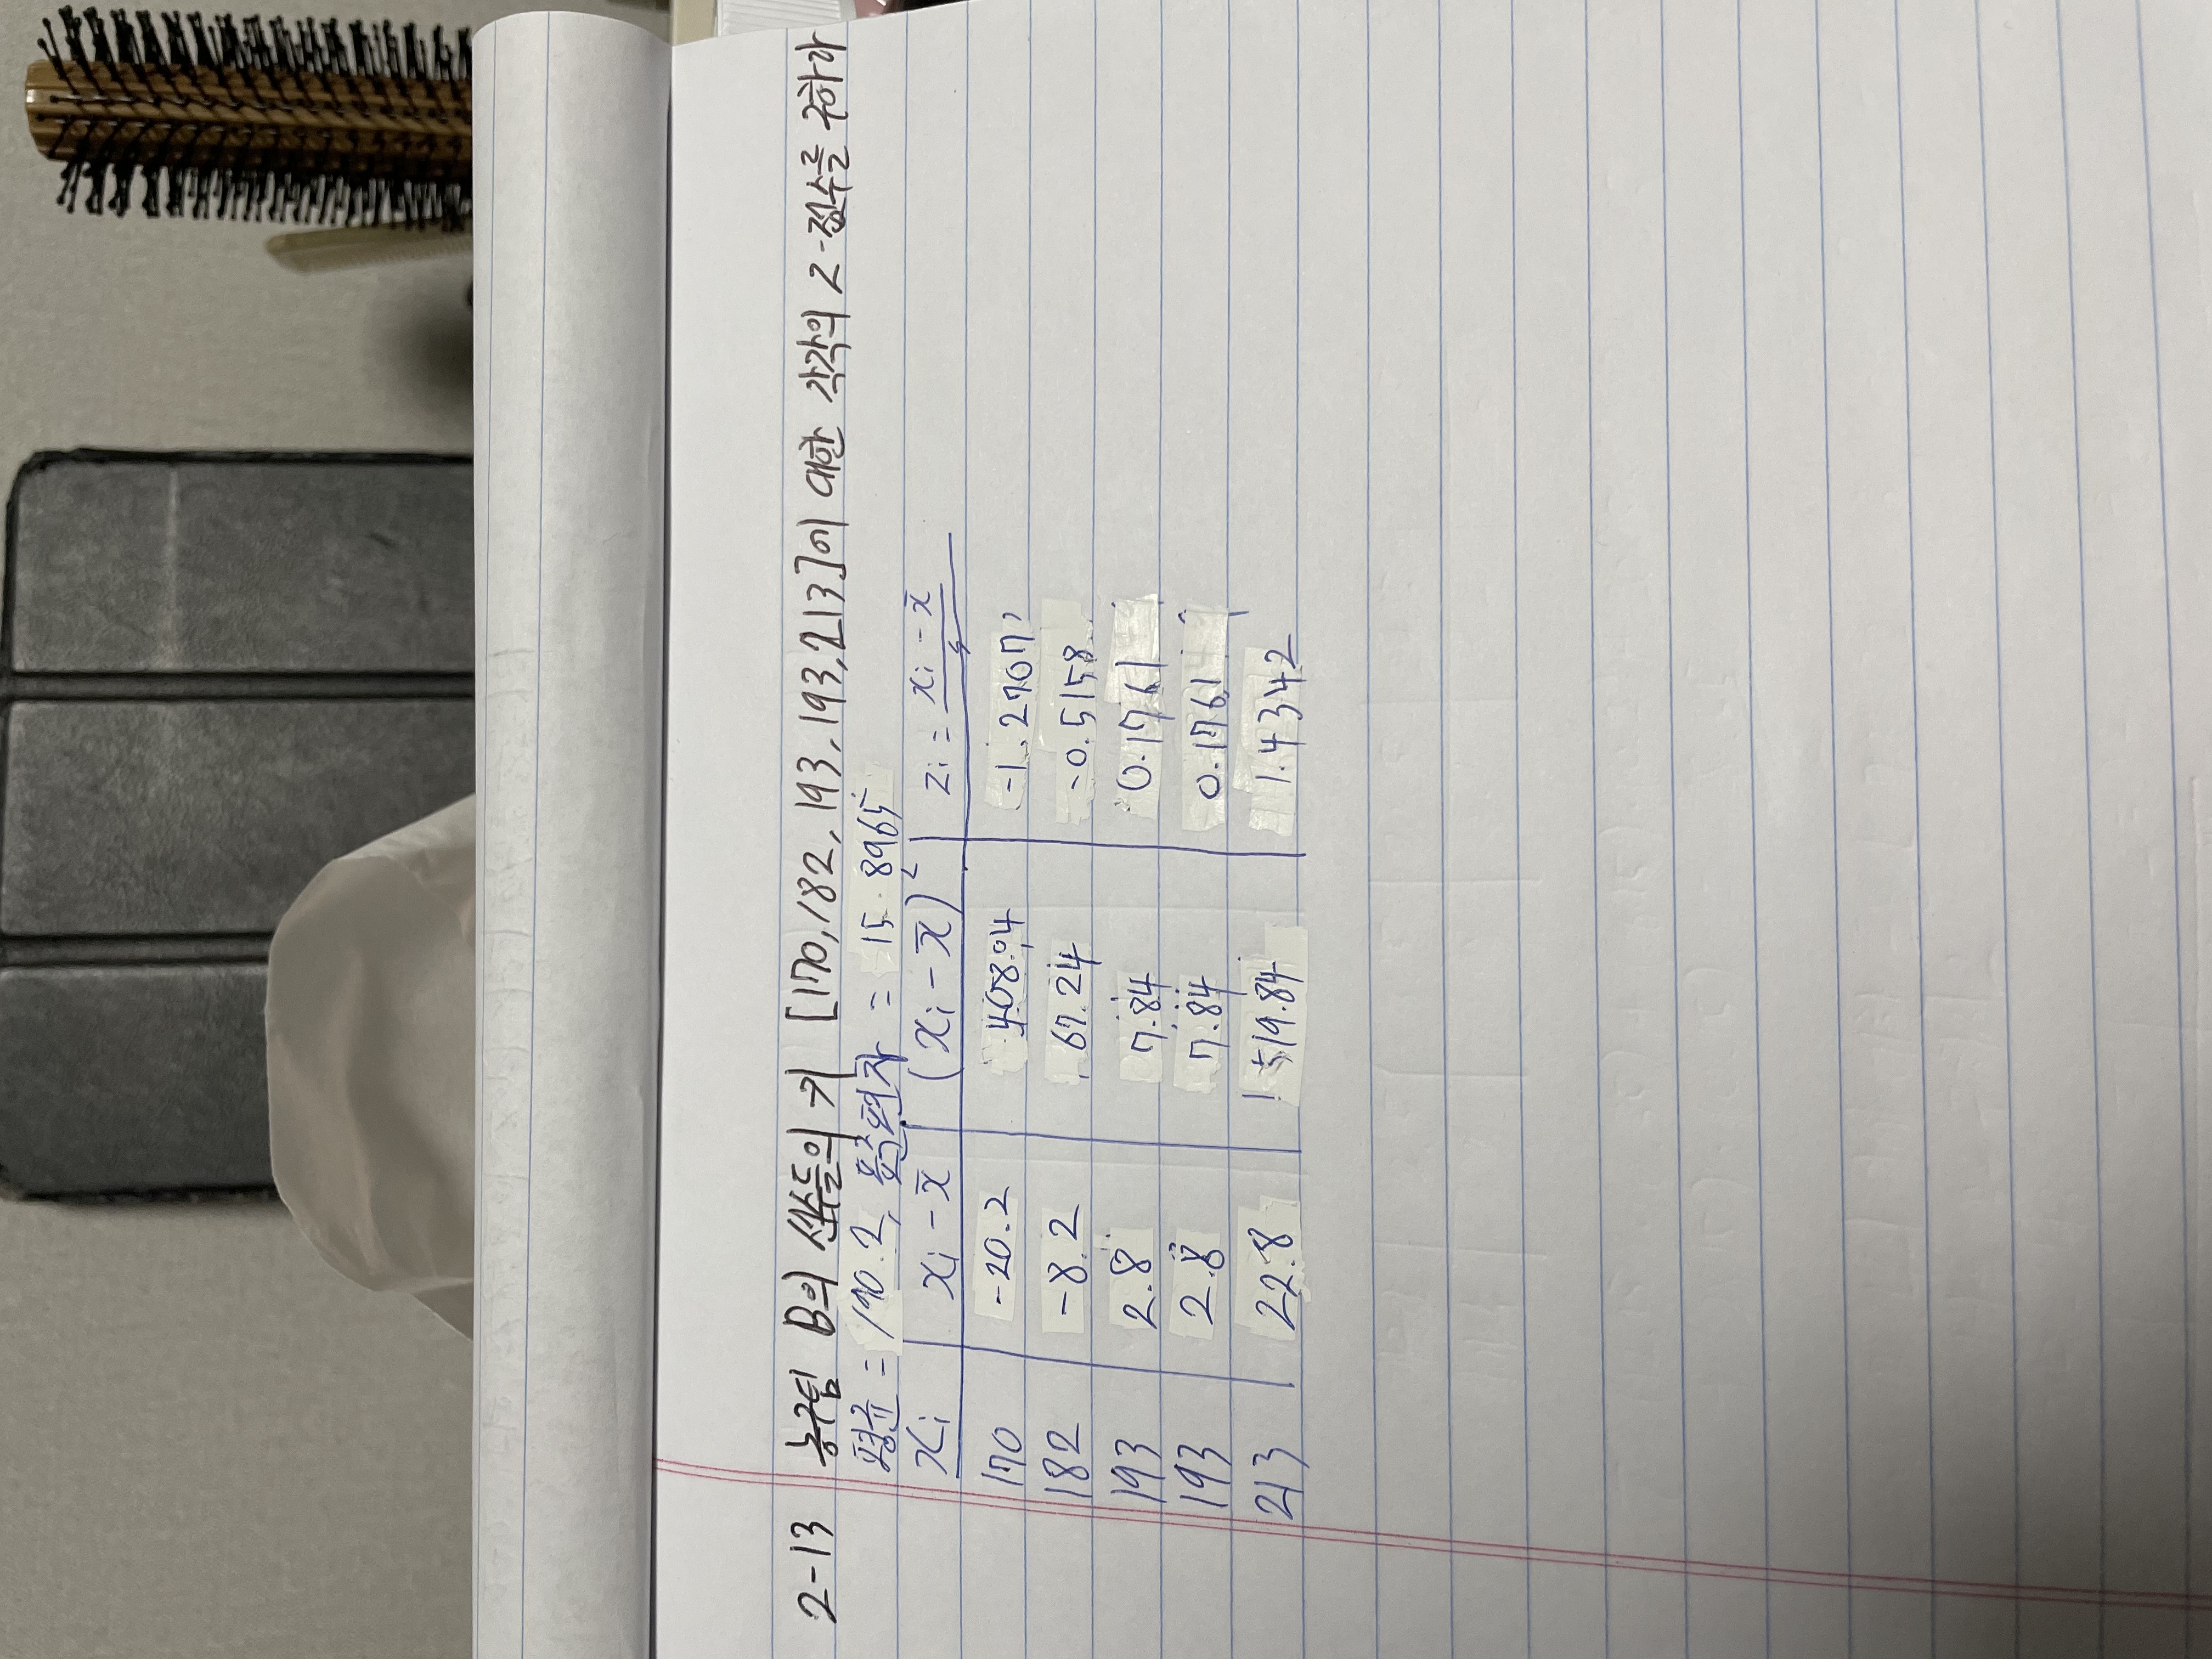 2-13 농구팀 B의 선수들의 키 [170, 182, 193, 193, 213]에 대한 각각의 Z-점수를 구하라
평균 = 190.2, 표준편차 = 15.8965
xi | xi - x̄ | (xi - x̄)² | zi = (xi - x̄)/s
170 | -20.2 | 408.04 | -1.2707
182 | -8.2 | 67.24 | -0.5158
193 | 2.8 | 7.84 | 0.1761
193 | 2.8 | 7.84 | 0.1761
213 | 22.8 | 519.84 | 1.4342